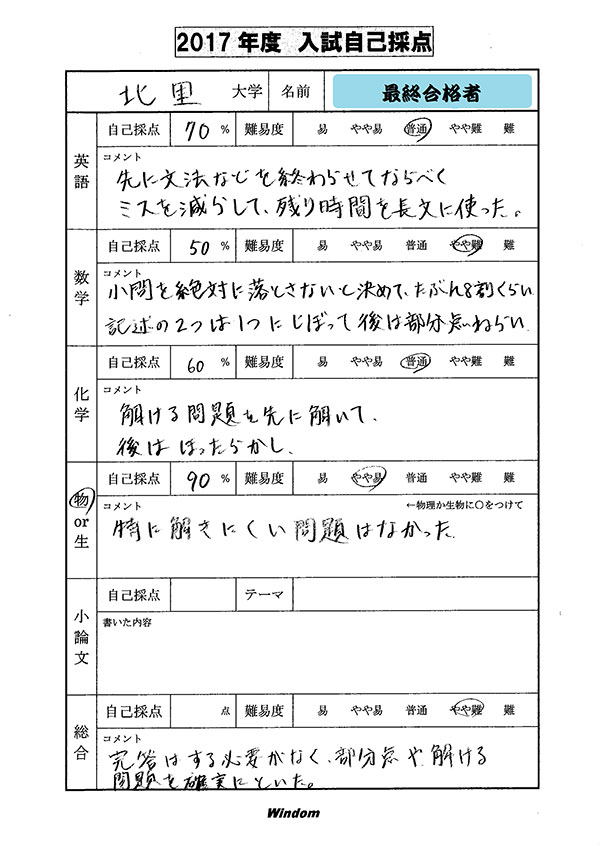 2017年度 入試自己採点
北里 大学 名前 最終合格者
英語
自己採点 70 % 難易度 易 やや易 普通 やや難 難
コメント
先に文法などを終わらせてなるべく
ミスを減らして、残り時間を長文に使った。
数学
自己採点 50 % 難易度 易 やや易 普通 やや難 難
コメント
小問を絶対に落とさないと決めて、たぶん8割くらい
記述の2つは1つにしぼって後は部分点ねらい
化学
自己採点 60 % 難易度 易 やや易 普通 やや難 難
コメント
解ける問題を先に解いて、
後はほったらかし、
物or生
自己採点 90 % 難易度 易 やや易 普通 やや難 難
コメント ←物理か生物に○をつけて
特に解きにくい問題はなかった
小論文
自己採点 テーマ
書いた内容
総合
自己採点 点 難易度 易 やや易 普通 やや難 難
コメント
完答はする必要がなく、部分点や解ける
問題を確実にといた。
Windom